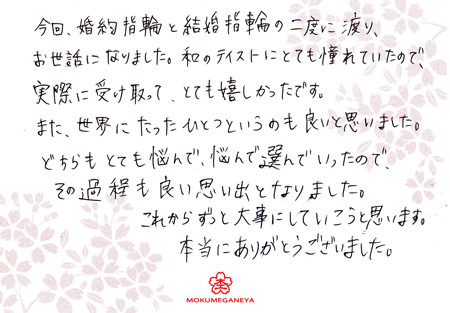 今回、婚約指輪と結婚指輪の二度に渡り、
お世話になりました。和のテイストにとても憧れていたので、
実際に受け取って、とても嬉しかったです。
また、世界にたったひとつというのも良いと思いました。
どちらもとても悩んで、悩んで選んでいったので、
その過程も良い思い出となりました。
これからずっと大事にしていこうと思います。
本当にありがとうございました。
MOKUMEGANEYA